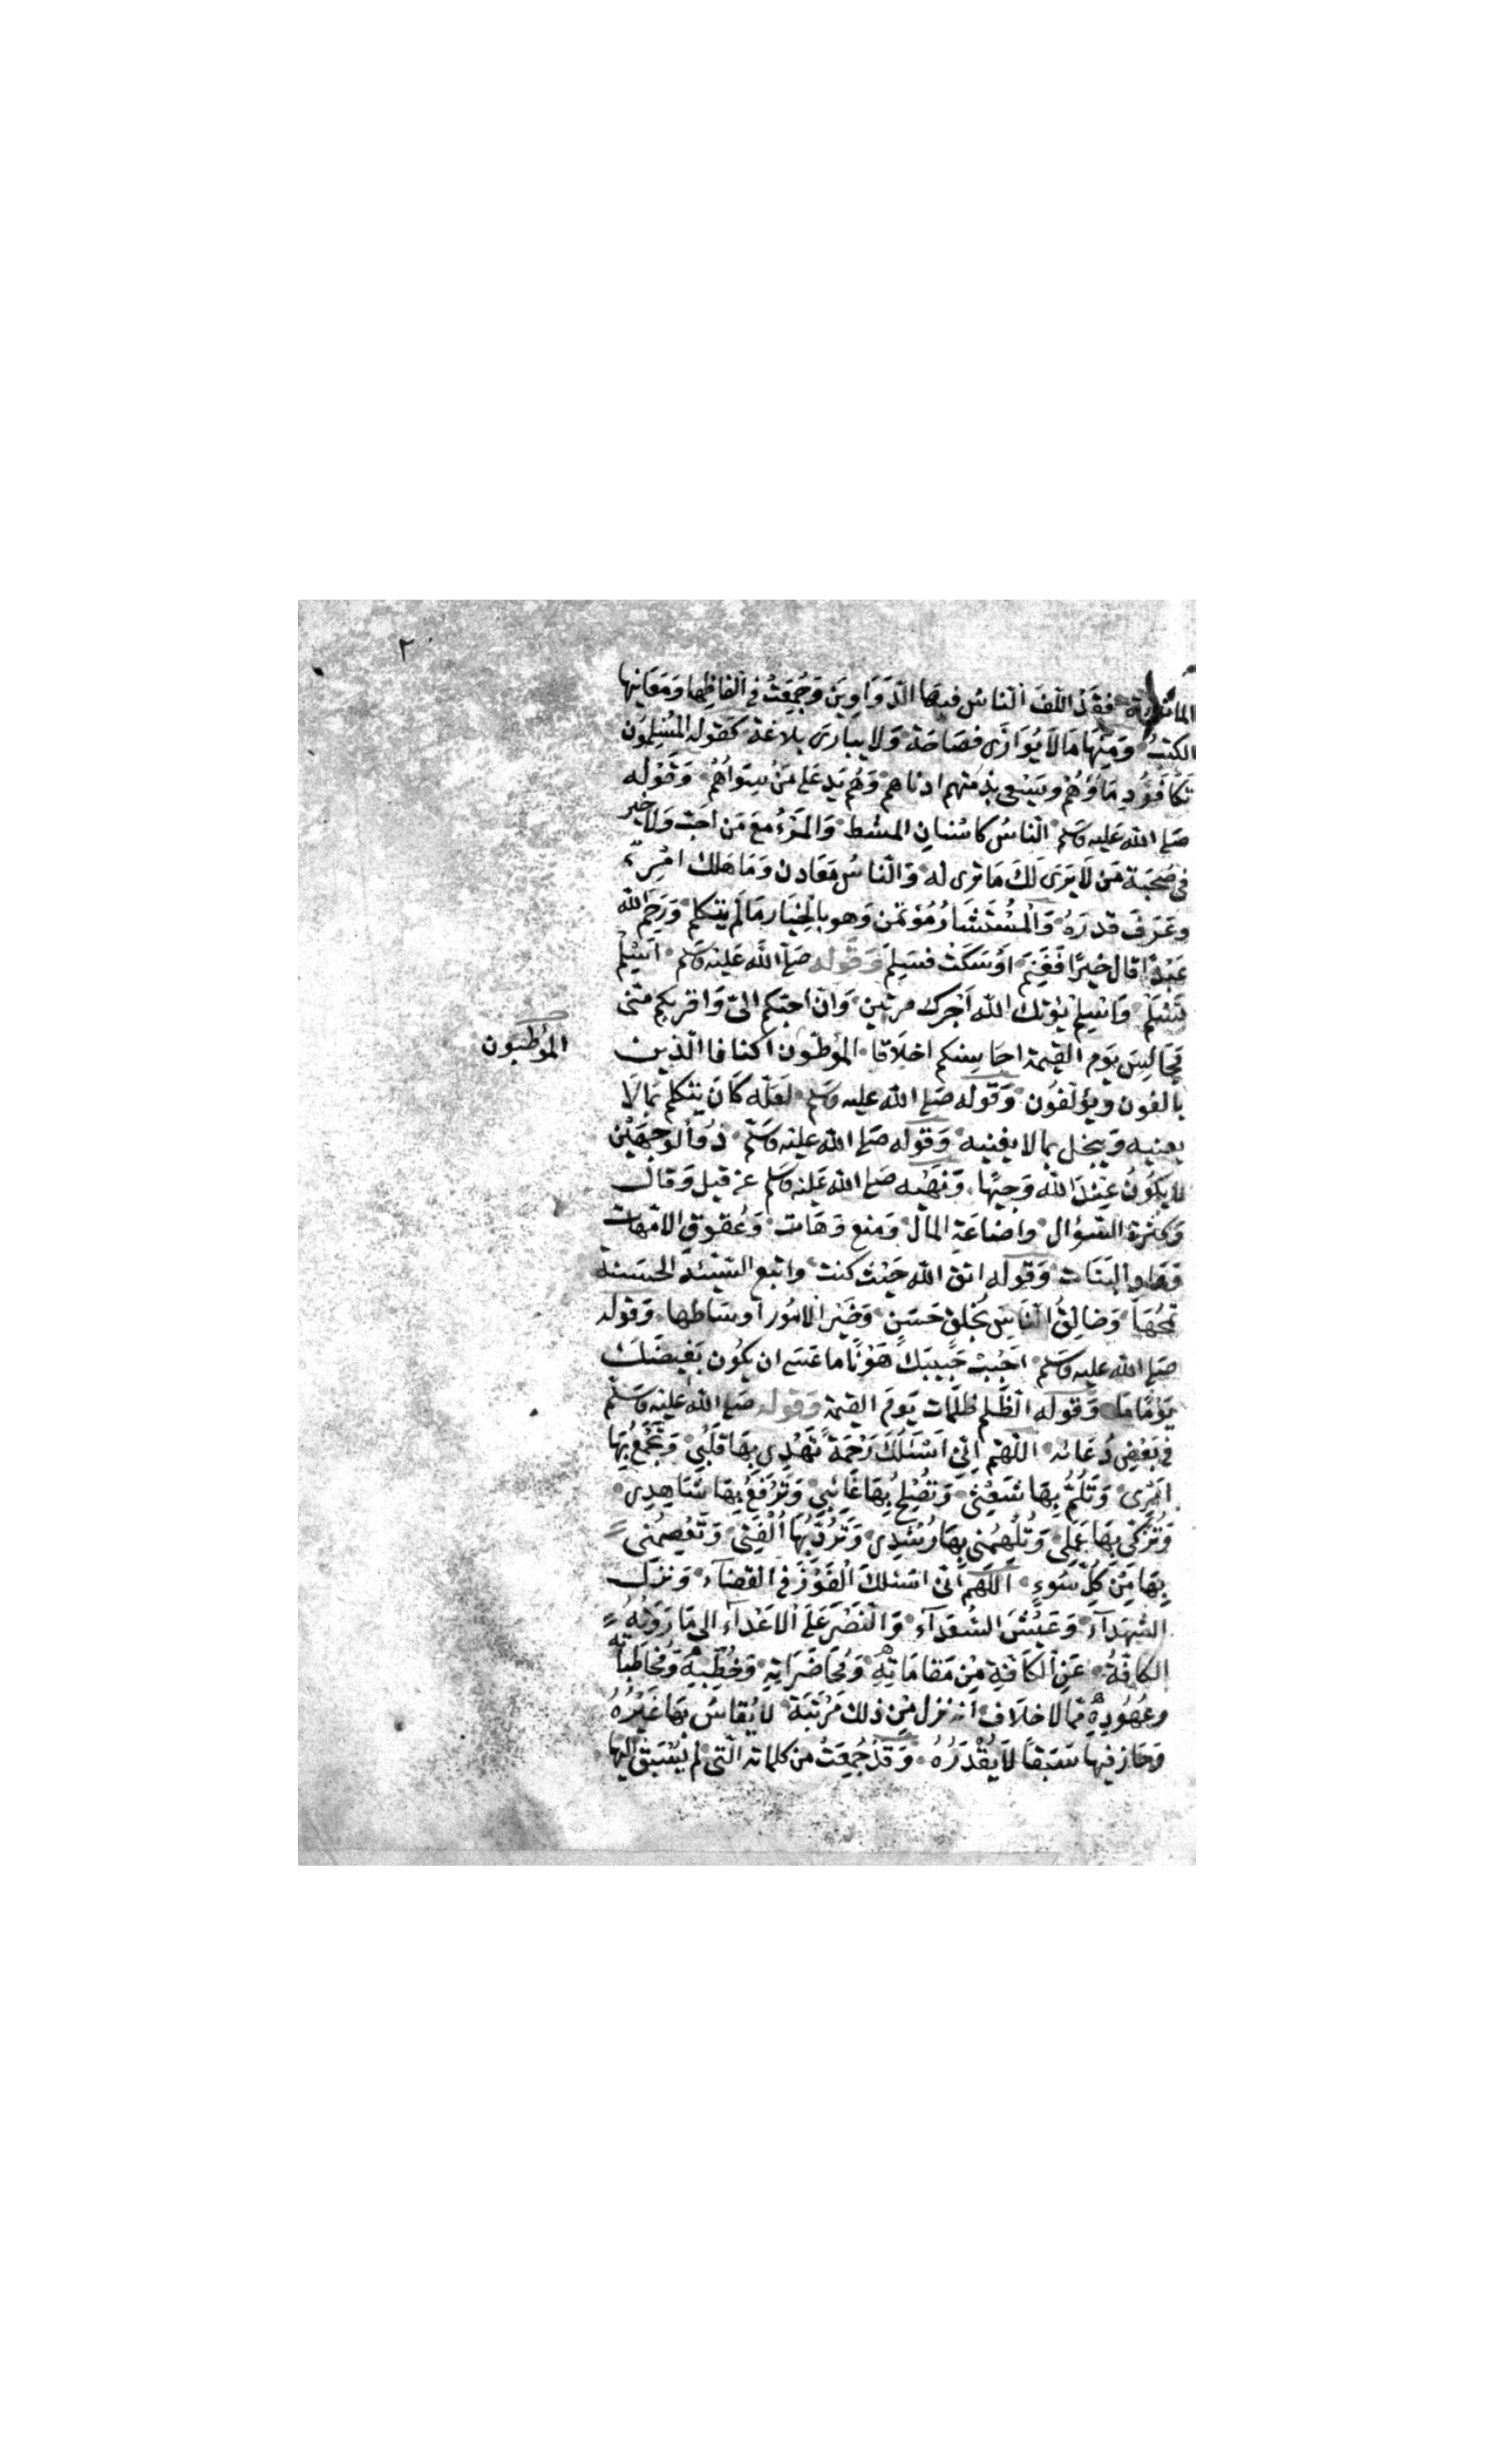 ٢
المأثورة فقد الّف الناس فيها الدّواوين وجُمعت في الفاظها ومعانيها
الكتب ومنها ما لا يُوازَى فصاحة ولا يبارى بلاغة كقوله المسلمون
تتكافؤ دماؤهم ويسعى بذمتهم ادناهم وهم يد على من سواهم وقوله
صلى الله عليه وسلم الناس كاسنان المشط والمرء مع من احب ولا خير
في صحبة من لا يرى لك ما ترى له والناس معادن وما هلك امرئ
وعرف قدره والمستشار مؤتمن وهو بالخيار ما لم يتكلم ورحم الله
عبدا قال خيرا فغنم او سكت فسلم وقوله صلى الله عليه وسلم اسلم
تسلم واسلم يؤتك الله اجرك مرتين وان احبكم الىّ واقربكم منى
مجالس يوم القيمة احاسنكم اخلاقا الموطّون اكنافا الذين
يالفون ويؤلفون وقوله صلى الله عليه وسلم لعله كان يتكلم بما لا
يعنيه ويبخل بما لا يغنيه وقوله صلى الله عليه وسلم ذو الوجهين
لا يكون عند الله وجيها ونهيه صلى الله عليه وسلم عن قيل وقال
وكثرة السؤال واضاعة المال ومنع وهات وعقوق الامّهات
ووأد البنات وقوله اتق الله حيث كنت واتبع السيئة الحسنة
تمحها وخالق الناس بخلق حسن وخير الامور اوساطها وقوله
صلى الله عليه وسلم احبب حبيبك هونا ما عسى ان يكون بغيضك
يوما ما وقوله الظلم ظلمات يوم القيمة وقوله صلى الله عليه وسلم
في بعض دعائه اللّهم انى اسئلك رحمة تهدى بها قلبى وتجمع بها
امرى وتلمّ بها شعثى وتصلح بها غائبى وترفع بها شاهدى
وتزكّى بها عملى وتلهمنى بها رشدى وتردّ بها الفتى وتعصمنى
بها من كل سوء اللّهم انى اسئلك الفوز في القضاء ونزل
الشهداء وعيش السعداء والنصر على الاعداء الى ما روته
الكافّة عن الكافة من مقاماته ومحاضراته وخطبه ومخاطباته
وعهوده مما لا خلاف انه نزل من ذلك مرتبة لا يقاس بها غيره
وحاز فيها سبقا لا يقدر قدره وقد جمعت من كلماته التى لم يسبق اليها
الموطّيون